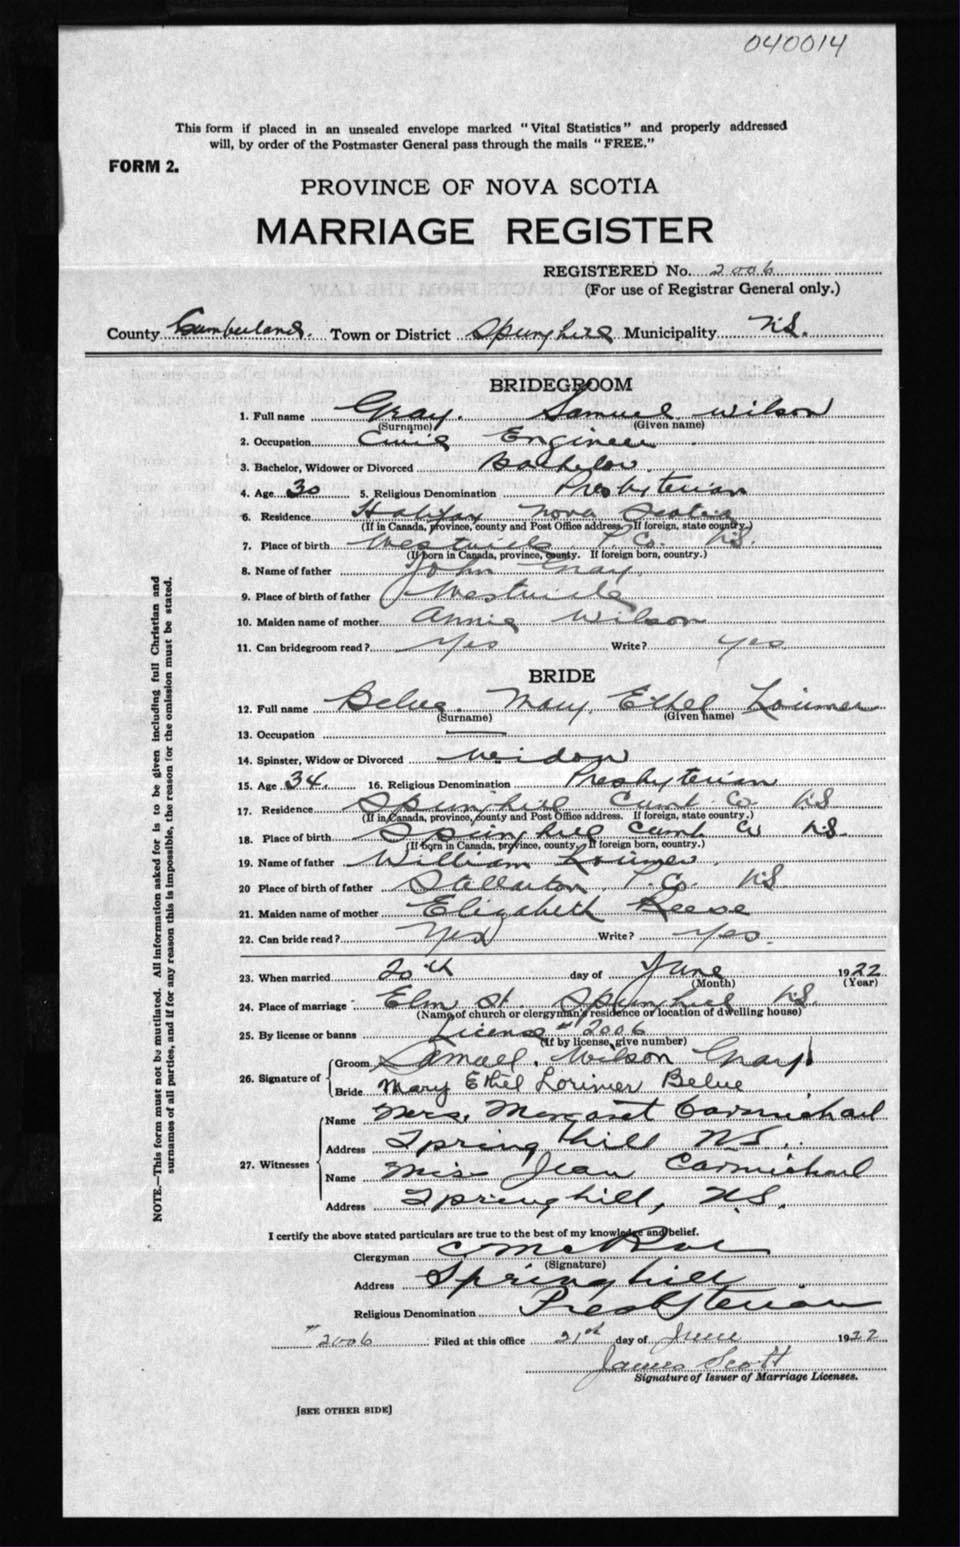 040014
This form if placed in an unsealed envelope marked "Vital Statistics" and properly addressed
will, by order of the Postmaster General pass through the mails "FREE."
FORM 2.
PROVINCE OF NOVA SCOTIA
MARRIAGE REGISTER
REGISTERED No. 2006
(For use of Registrar General only.)
County Cumberland. Town or District Springhill Municipality N.S.
BRIDEGROOM
1. Full name Gray. Samuel Wilson
(Surname) (Given name)
2. Occupation Civil Engineer
3. Bachelor, Widower or Divorced Bachelor.
4. Age 30 5. Religious Denomination Presbyterian
6. Residence Halifax Nova Scotia
(If in Canada, province, county and Post Office address. If foreign, state country.)
7. Place of birth Westville P. Co. N.S.
(If born in Canada, province, county. If foreign born, country.)
8. Name of father John Gray
9. Place of birth of father Westville
10. Maiden name of mother Annie Wilson
11. Can bridegroom read? Yes Write? Yes
BRIDE
12. Full name Belue. Mary Ethel Lorimer
(Surname) (Given name)
13. Occupation —
14. Spinster, Widow or Divorced Widow
15. Age 34. 16. Religious Denomination Presbyterian
17. Residence Springhill Cumb. Co N.S
(If in Canada, province, county and Post Office address. If foreign, state country.)
18. Place of birth Springhill Cumb Co N.S.
(If born in Canada, province, county. If foreign born, country.)
19. Name of father William Lorimer.
20 Place of birth of father Stellarton. P. Co. N.S.
21. Maiden name of mother Elizabeth Reese
22. Can bride read? Yes Write? Yes.
23. When married 20th day of June 1922
(Month) (Year)
24. Place of marriage Elm St. Springhill N.S.
(Name of church or clergyman's residence or location of dwelling house)
25. By license or banns License # 2006
(If by license, give number)
26. Signature of Groom Samuel. Wilson Gray
Bride Mary Ethel Lorimer Belue
27. Witnesses Name Mrs. Margaret Carmichael
Address Springhill N.S.
Name Miss Jean Carmichael
Address Springhill, N.S.
I certify the above stated particulars are true to the best of my knowledge and belief.
Clergyman
(Signature)
Address Springhill.
Religious Denomination Presbyterian
# 2006 Filed at this office 21st day of June 1922
James Scott
Signature of Issuer of Marriage Licenses.
[SEE OTHER SIDE]
NOTE.—This form must not be mutilated. All information asked for is to be given including full Christian and
surnames of all parties, and if for any reason this is impossible, the reason for the omission must be stated.